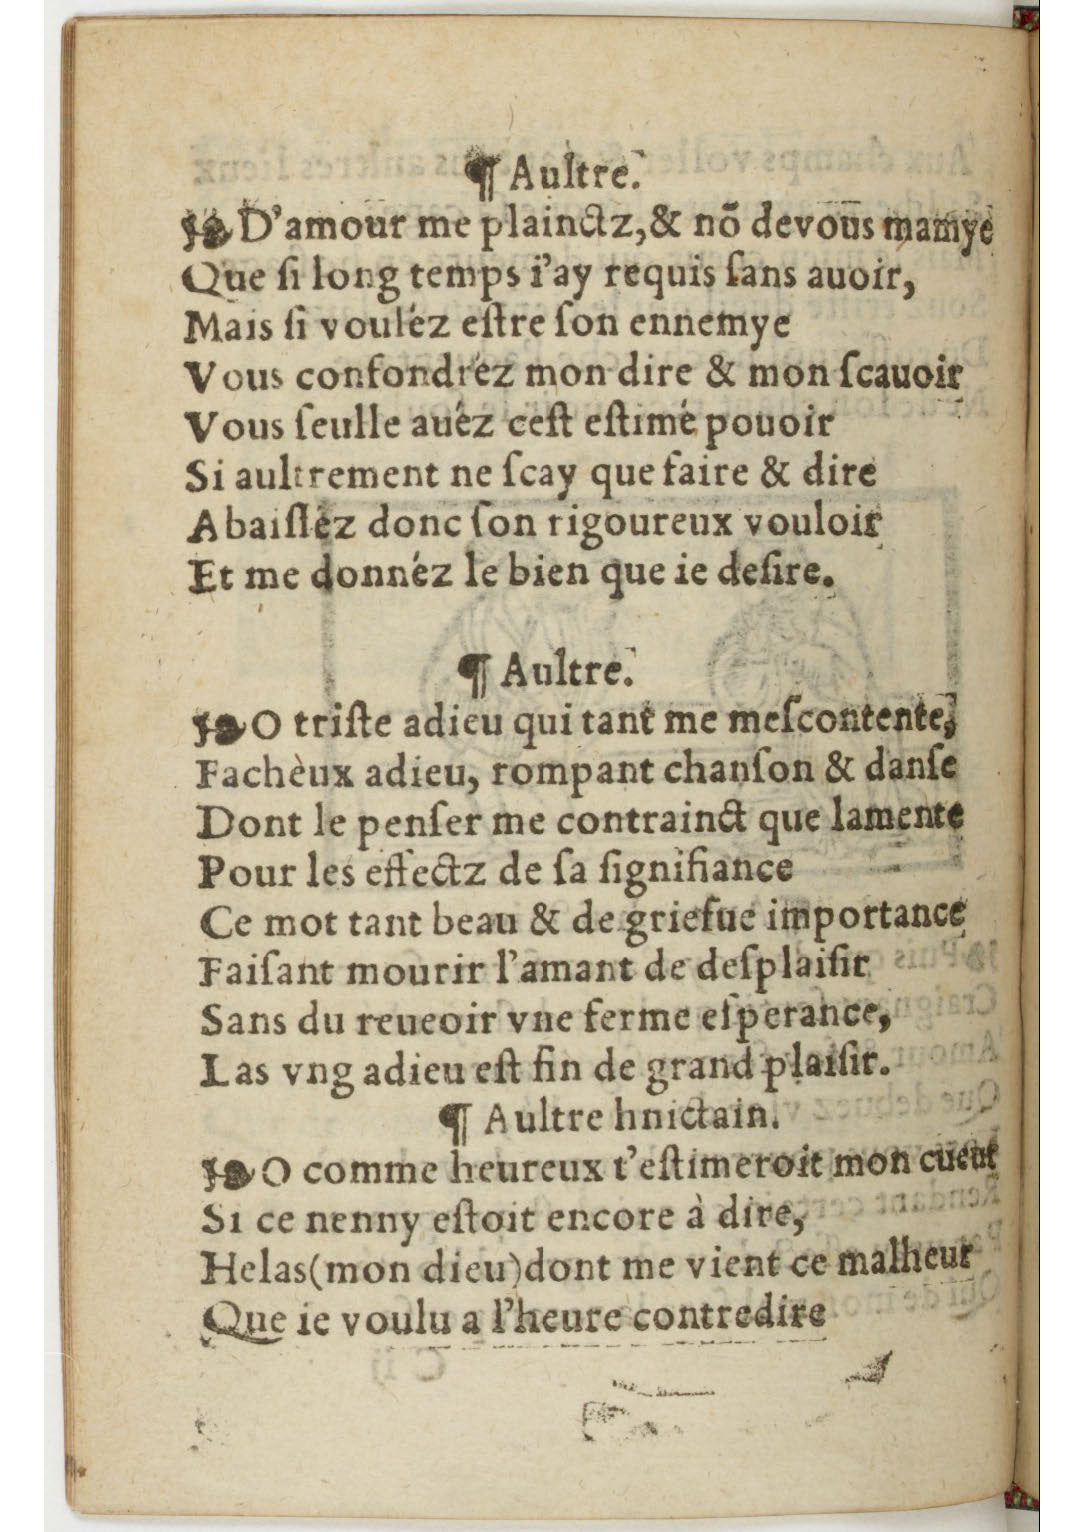 ¶ Aultre.
❧ D'amour me plainctz, & nõ devous mamye
Que ſi long temps i'ay requis ſans auoir,
Mais ſi vouléz eſtre ſon ennemye
Vous confondréz mon dire & mon ſcauoir
Vous ſeulle auéz ceſt eſtimé pouoir
Si aultrement ne ſcay que faire & dire
Abaiſſéz donc ſon rigoureux vouloir
Et me donnéz le bien que ie deſire.
¶ Aultre.
❧ O triſte adieu qui tant me meſcontente,
Fachèux adieu, rompant chanſon & danſe
Dont le penſer me contrainct que lamente
Pour les effectz de ſa ſignifiance
Ce mot tant beau & de griefue importance
Faiſant mourir l'amant de deſplaiſir
Sans du reueoir vne ferme eſperance,
Las vng adieu eſt fin de grand plaiſir.
¶ Aultre hnictain.
❧ O comme heureux t'eſtimeroit mon cueur
Si ce nenny eſtoit encore à dire,
Helas (mon dieu) dont me vient ce malheur
Que ie voulu a l'heure contredire